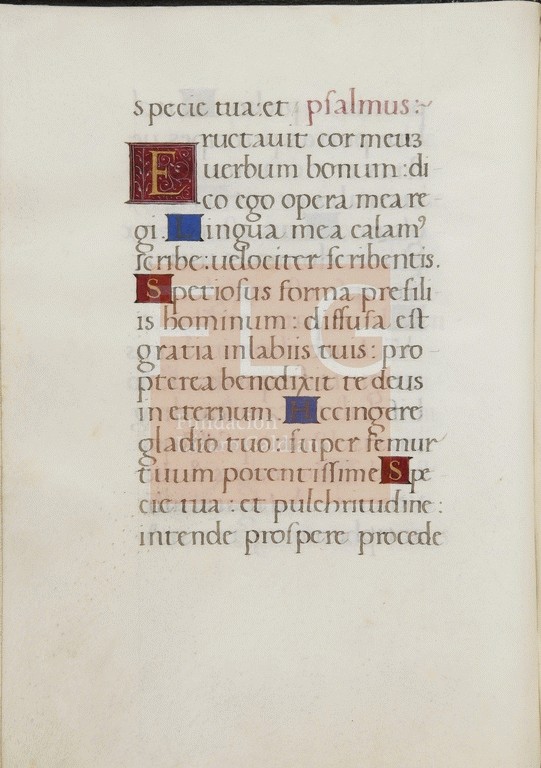 specie tua: et psalmus:~
Eructauit cor meuꝫ
uerbum bonum: di
co ego opera mea re
gi. Lingua mea calamꝰ
scribe: uelociter scribentis.
Spetiosus forma pre fili
is hominum: diffusa est
gratia in labiis tuis: pro
pterea benedixit te deus
in eternum. Accingere
gladio tuo: super femur
tuum potentissime Spe
cie tua: et pulchritudine:
intende prospere procede
FLG
Fundación